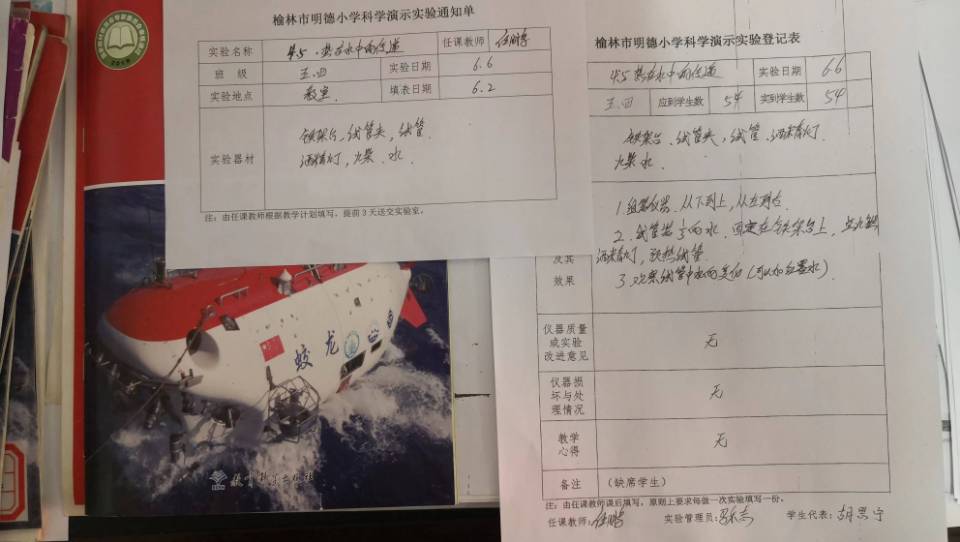 榆林市明德小学科学演示实验通知单
实验名称 45.热在水中的传递 任课教师 任鹏
班 级 五.四 实验日期 6.6
实验地点 教室. 填表日期 6.2
实验器材
铁架台,试管夹,试管.
酒精灯,火柴.水
注:由任课教师根据教学计划填写,提前3天送交实验室。
榆林市明德小学科学演示实验登记表
45热在水中的传递 实验日期 6.6
五.四 应到学生数 54 实到学生数 54
铁架台.试管夹,试管.酒精灯.
火柴 水.
1.组装仪器.从下到上,从左到右.
2.试管装的水.固定在铁架台上,
酒精灯,预热试管.
3.观察试管中水的变化(可以加红墨水).
及其
效果
仪器质量
或实验
改进意见
无
仪器损
坏与处
理情况
无
教学
心得
无
备注 (缺席学生)
注:由任课教师课后填写,原则上要求每做一次实验填写一份。
任课教师:任鹏 实验管理员: 学生代表:胡思宁
蛟龙
2019
教育科学出版社